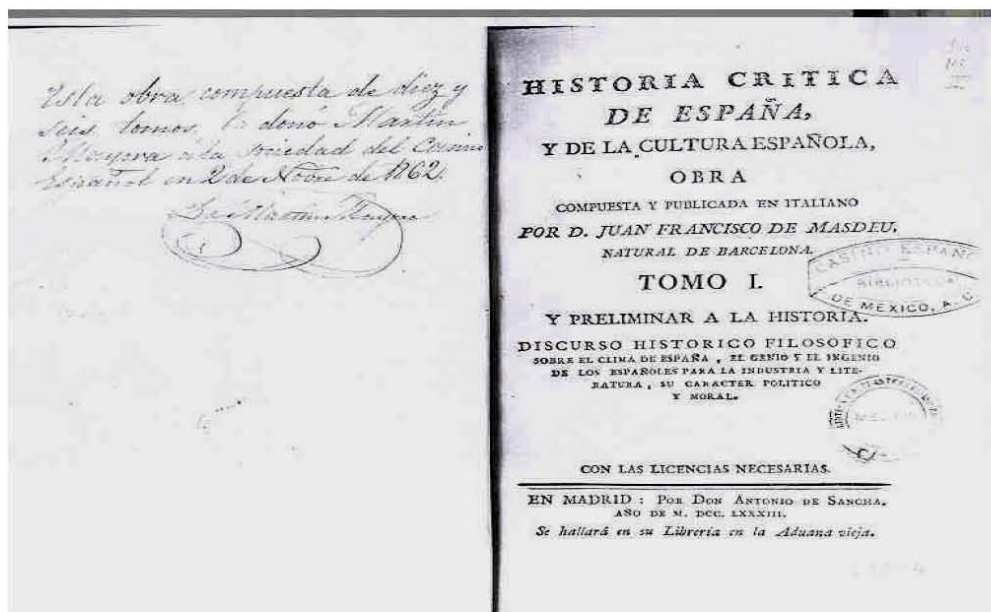 Esta obra compuesta de diez y
seis tomos la donó Martin
á la Sociedad del Casino
Español en 2 de Nobre de 1862.
Martin
HISTORIA CRITICA
DE ESPAÑA,
Y DE LA CULTURA ESPAÑOLA,
OBRA
COMPUESTA Y PUBLICADA EN ITALIANO
POR D. JUAN FRANCISCO DE MASDEU,
NATURAL DE BARCELONA.
TOMO I.
CASINO ESPAÑOL
BIBLIOTECA
DE MEXICO, A. C.
Y PRELIMINAR A LA HISTORIA.
DISCURSO HISTORICO FILOSOFICO
SOBRE EL CLIMA DE ESPAÑA, EL GENIO Y EL INGENIO
DE LOS ESPAÑOLES PARA LA INDUSTRIA Y LITE-
RATURA, SU CARACTER POLITICO
Y MORAL.
CON LAS LICENCIAS NECESARIAS.
EN MADRID: POR DON ANTONIO DE SANCHA.
AÑO DE M. DCC. LXXXIII.
Se hallará en su Librería en la Aduana vieja.